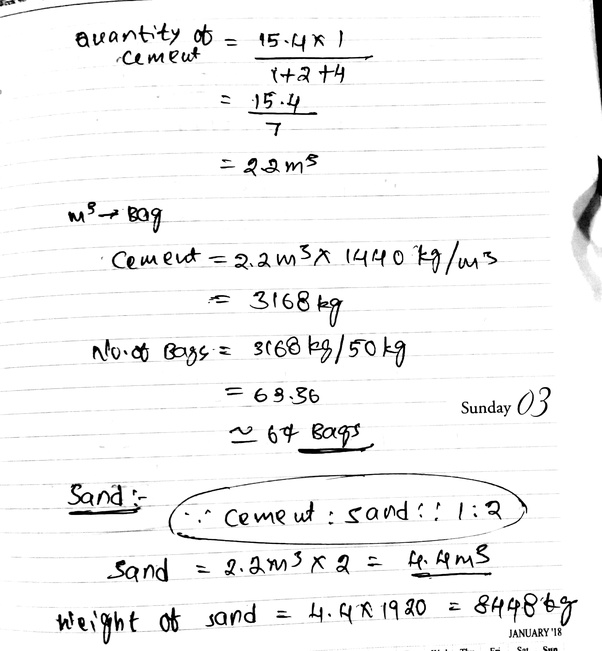 Quantity of cement = 15.4 × 1 / 1+2+4
= 15.4 / 7
= 2.2 m³
m³ → Bag
Cement = 2.2 m³ × 1440 kg/m³
= 3168 kg
No. of Bags = 3168 kg / 50 kg
= 63.36
Sunday 03
≃ 64 Bags
Sand :-
∵ cement : sand :: 1 : 2
Sand = 2.2 m³ × 2 = 4.4 m³
Weight of sand = 4.4 × 1920 = 8448 kg
JANUARY '18
Fri Sat Sun